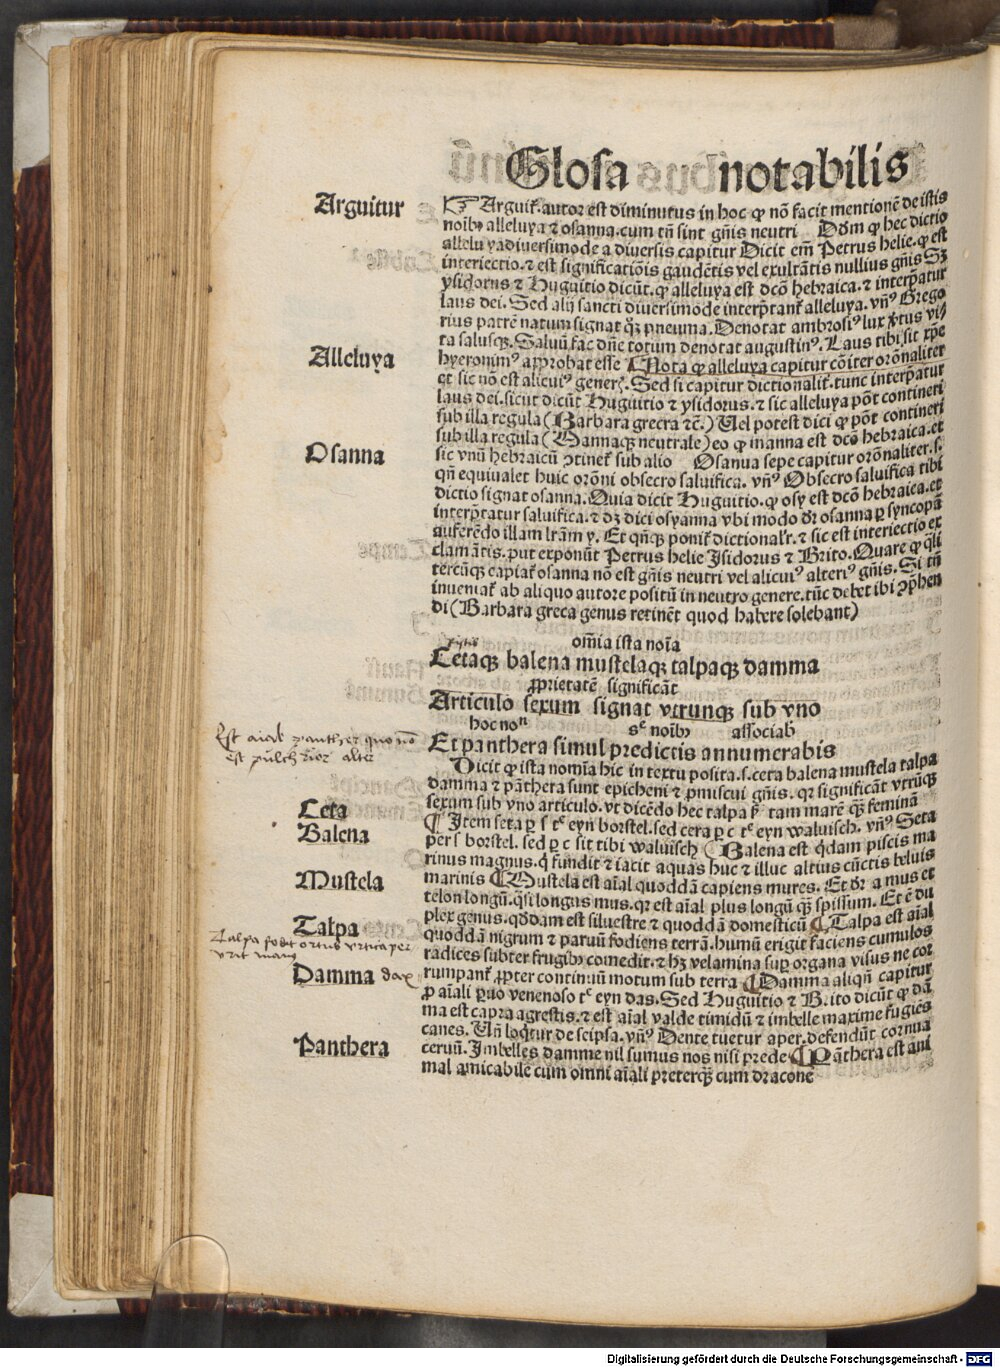 Glosa notabilis
Arguitur
☞ Arguit᷑. autor est diminutus in hoc ꝙ nō facit mentionē de istis
noībꝫ alleluya ⁊ osanna. cum tn̄ sint gn̄is neutri Dd̄m ꝙ hec dictio
alleluya diuersimode a diuersis capitur Dicit em̄ Petrus helie. ꝙ est
interiectio. ⁊ est significatiōis gaudētis vel exultātis nullius gn̄is Sꝫ
ysidorus ⁊ Huguitio dicūt. ꝙ alleluya est dcō hebraica. ⁊ interp̄tatur
laus dei. Sed alij sancti diuersimode interp̄tant᷑ alleluya. vn̄ꝰ Grego
rius patrē natum signat qꝫ pneuma. Denotat ambrosiꝰ lux xp̄tus vi
ta salusqꝫ. Saluū fac dn̄e totum denotat augustinꝰ. Laus tibi sit xp̄e
Alleluya
hyeronimꝰ approbat esse ¶ Nota ꝙ alleluya capitur cōiter orōnaliter
et sic nō est alicuiꝰ gener̄. Sed si capitur dictionalit᷑. tunc interp̄atur
laus dei. sicut dicūt Huguitio ⁊ ysidorus. ⁊ sic alleluya pōt contineri
sub illa regula (Barbara grecra ⁊c̄.) Uel potest dici ꝙ pōt contineri
sub illa regula (Mannaqꝫ neutrale) eo ꝙ manna est dcō hebraica. et
Osanna
sic vnū hebraicū ↄtinet᷑ sub alio Osanua sepe capitur orōnaliter. s.
qn̄ equiualet huic orōni obsecro saluifica. vn̄ꝰ Obsecro saluifica tibi
dictio signat osanna. Quia dicit Huguitio. ꝙ osy est dcō hebraica. et
interp̄tatur saluifica. ⁊ dꝫ dici osyanna vbi modo dr̄ osanna ꝑ syncopā
auferēdo illam lr̄am y. Et qn̄qꝫ ponit᷑ dictional'r. ⁊ sic est interiectio ex
clamātis. put exponūt Petrus helie Isidorus ⁊ Brito. Quare ꝙ q̄li
tercūqꝫ capiat᷑ osanna nō est gn̄is neutri vel alicuiꝰ alteriꝰ gn̄is. Si tn̄
inueniat᷑ ab aliquo autore positū in neutro genere. tūc debet ibi ↄp̄hen
di (Barbara greca genus retinēt quod habere solebant)
om̄ia ista noīa
Cetaqꝫ balena mustelaqꝫ talpaqꝫ damma
ꝓprietatē significāt
Articulo sexum signat vtrunqꝫ sub vno
hoc noⁿ sᵉ noībꝫ associab᷑
Et panthera simul predictis annumerabis
Est aial panther quo nō
est pulchrior alter
Dicit ꝙ ista nomīa hic in textu posita. s. ceta balena mustela talpa
damma ⁊ pāthera sunt epicheni ⁊ ꝓmiscui gn̄is. qꝛ significāt vtrūqꝫ
sexum sub vno articulo. vt dicēdo hec talpa ꝑ tam marē qꝫ feminā
Ceta
¶ Item seta ꝑ s tᵉ eyn borstel. sed cera ꝑ c tᵉ eyn waluisch. vn̄ꝰ Seta
Balena
per s borstel. sed ꝑ c sit tibi waluisch ¶ Balena est q̄dam piscis ma
rinus magnus. q̄ fundit ⁊ iacit aquas huc ⁊ illuc altius cūctis beluis
Mustela
marinis ¶ Mustela est aīal quoddā capiens mures. Et dr̄ a mus et
telon longū. q̄si longus mus. qꝛ est aīal plus longū qꝫ spissum. Et ē du
plex genus. qd̄dam est siluestre ⁊ quoddā domesticū ¶ Talpa est aīal
Talpa
quoddā nigrum ⁊ paruū fodiens terrā. humū erigit faciens cumulos
Talpa fodit ortus vrtica per
vrit manꝰ
radices subter frugibꝫ comedit. ⁊ hꝫ velamina suꝑ organa visus ne cor
Damma dax
rumpant᷑ ꝓpter continuū motum sub terra ¶ Damma aliqn̄ capitur
ꝓ aīali ꝑuo venenoso tᵉ eyn das. Sed Huguitio ⁊ Brito dicūt ꝙ dā
ma est capra agrestis. ⁊ est aīal valde timidū ⁊ imbelle maxime fugiēs
canes. Un̄ loq̄tur de seipsa. vn̄ꝰ Dente tuetur aper. defendūt cornua
Panthera
ceruū. Imbelles damme nil sumus nos nisi prede ¶ Pāthera est ani
mal amicabile cum omni aīali preterqꝫ cum dracone
Digitalisierung gefördert durch die Deutsche Forschungsgemeinschaft - DFG